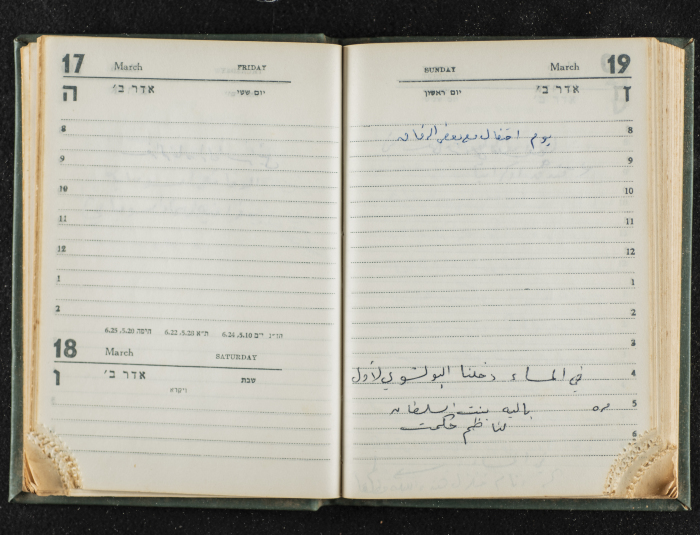 17 March FRIDAY
ה אדר ב׳ יום ששי
8
9
10
11
12
1
2
הדו״נ י״ם 5.10, 6.24 ת״א 5.28, 6.22 חיפה 5.20, 6.25
18 March SATURDAY
ו אדר ב׳ שבת
ויקרא
SUNDAY March 19
ז אדר ב׳ יום ראשון
8 يوم احتفال مع بعض الرفاق
9
10
11
12
1
2
3
4 في المساء دخلنا البولشوي لأول
5 مره باليه بنت السلطان
6 لناظم حكمت